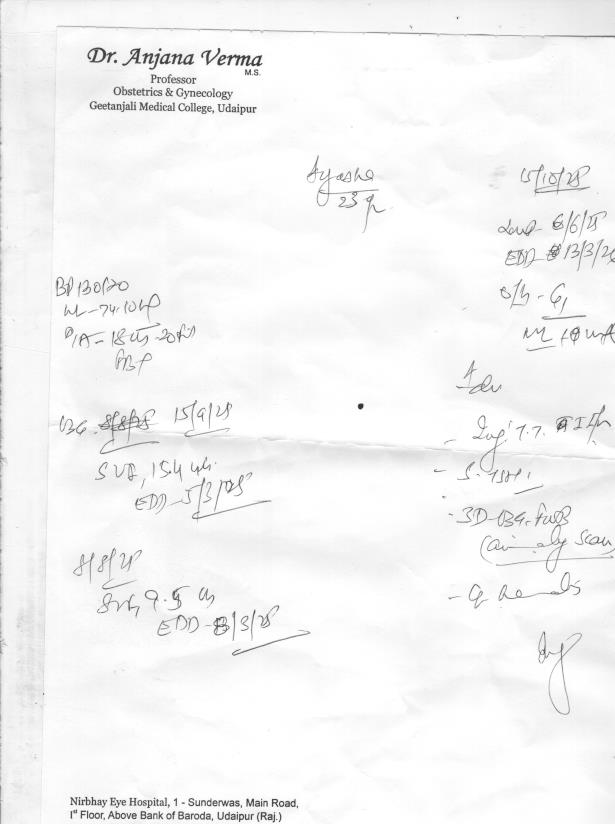 Dr. Anjana Verma
M.S.
Professor
Obstetrics & Gynecology
Geetanjali Medical College, Udaipur
Ayasha
23 yr
15/10/25
Lmp - 6/6/25
EDD - 13/3/26
O/H - G1
BP 130/70
Wt - 74.10 kg
P/A - 18 wk - 20 wk
USG 8/8/25 15/9/25
SVF, 15.4 wk
EDD - 5/3/25
8/8/25
9.5 wk
EDD - 8/3/25
Adv
- Inj. T.T.
- S. TSH
- 3D-USG-FWB
(anomaly scan)
Nirbhay Eye Hospital, 1 - Sunderwas, Main Road,
Ist Floor, Above Bank of Baroda, Udaipur (Raj.)